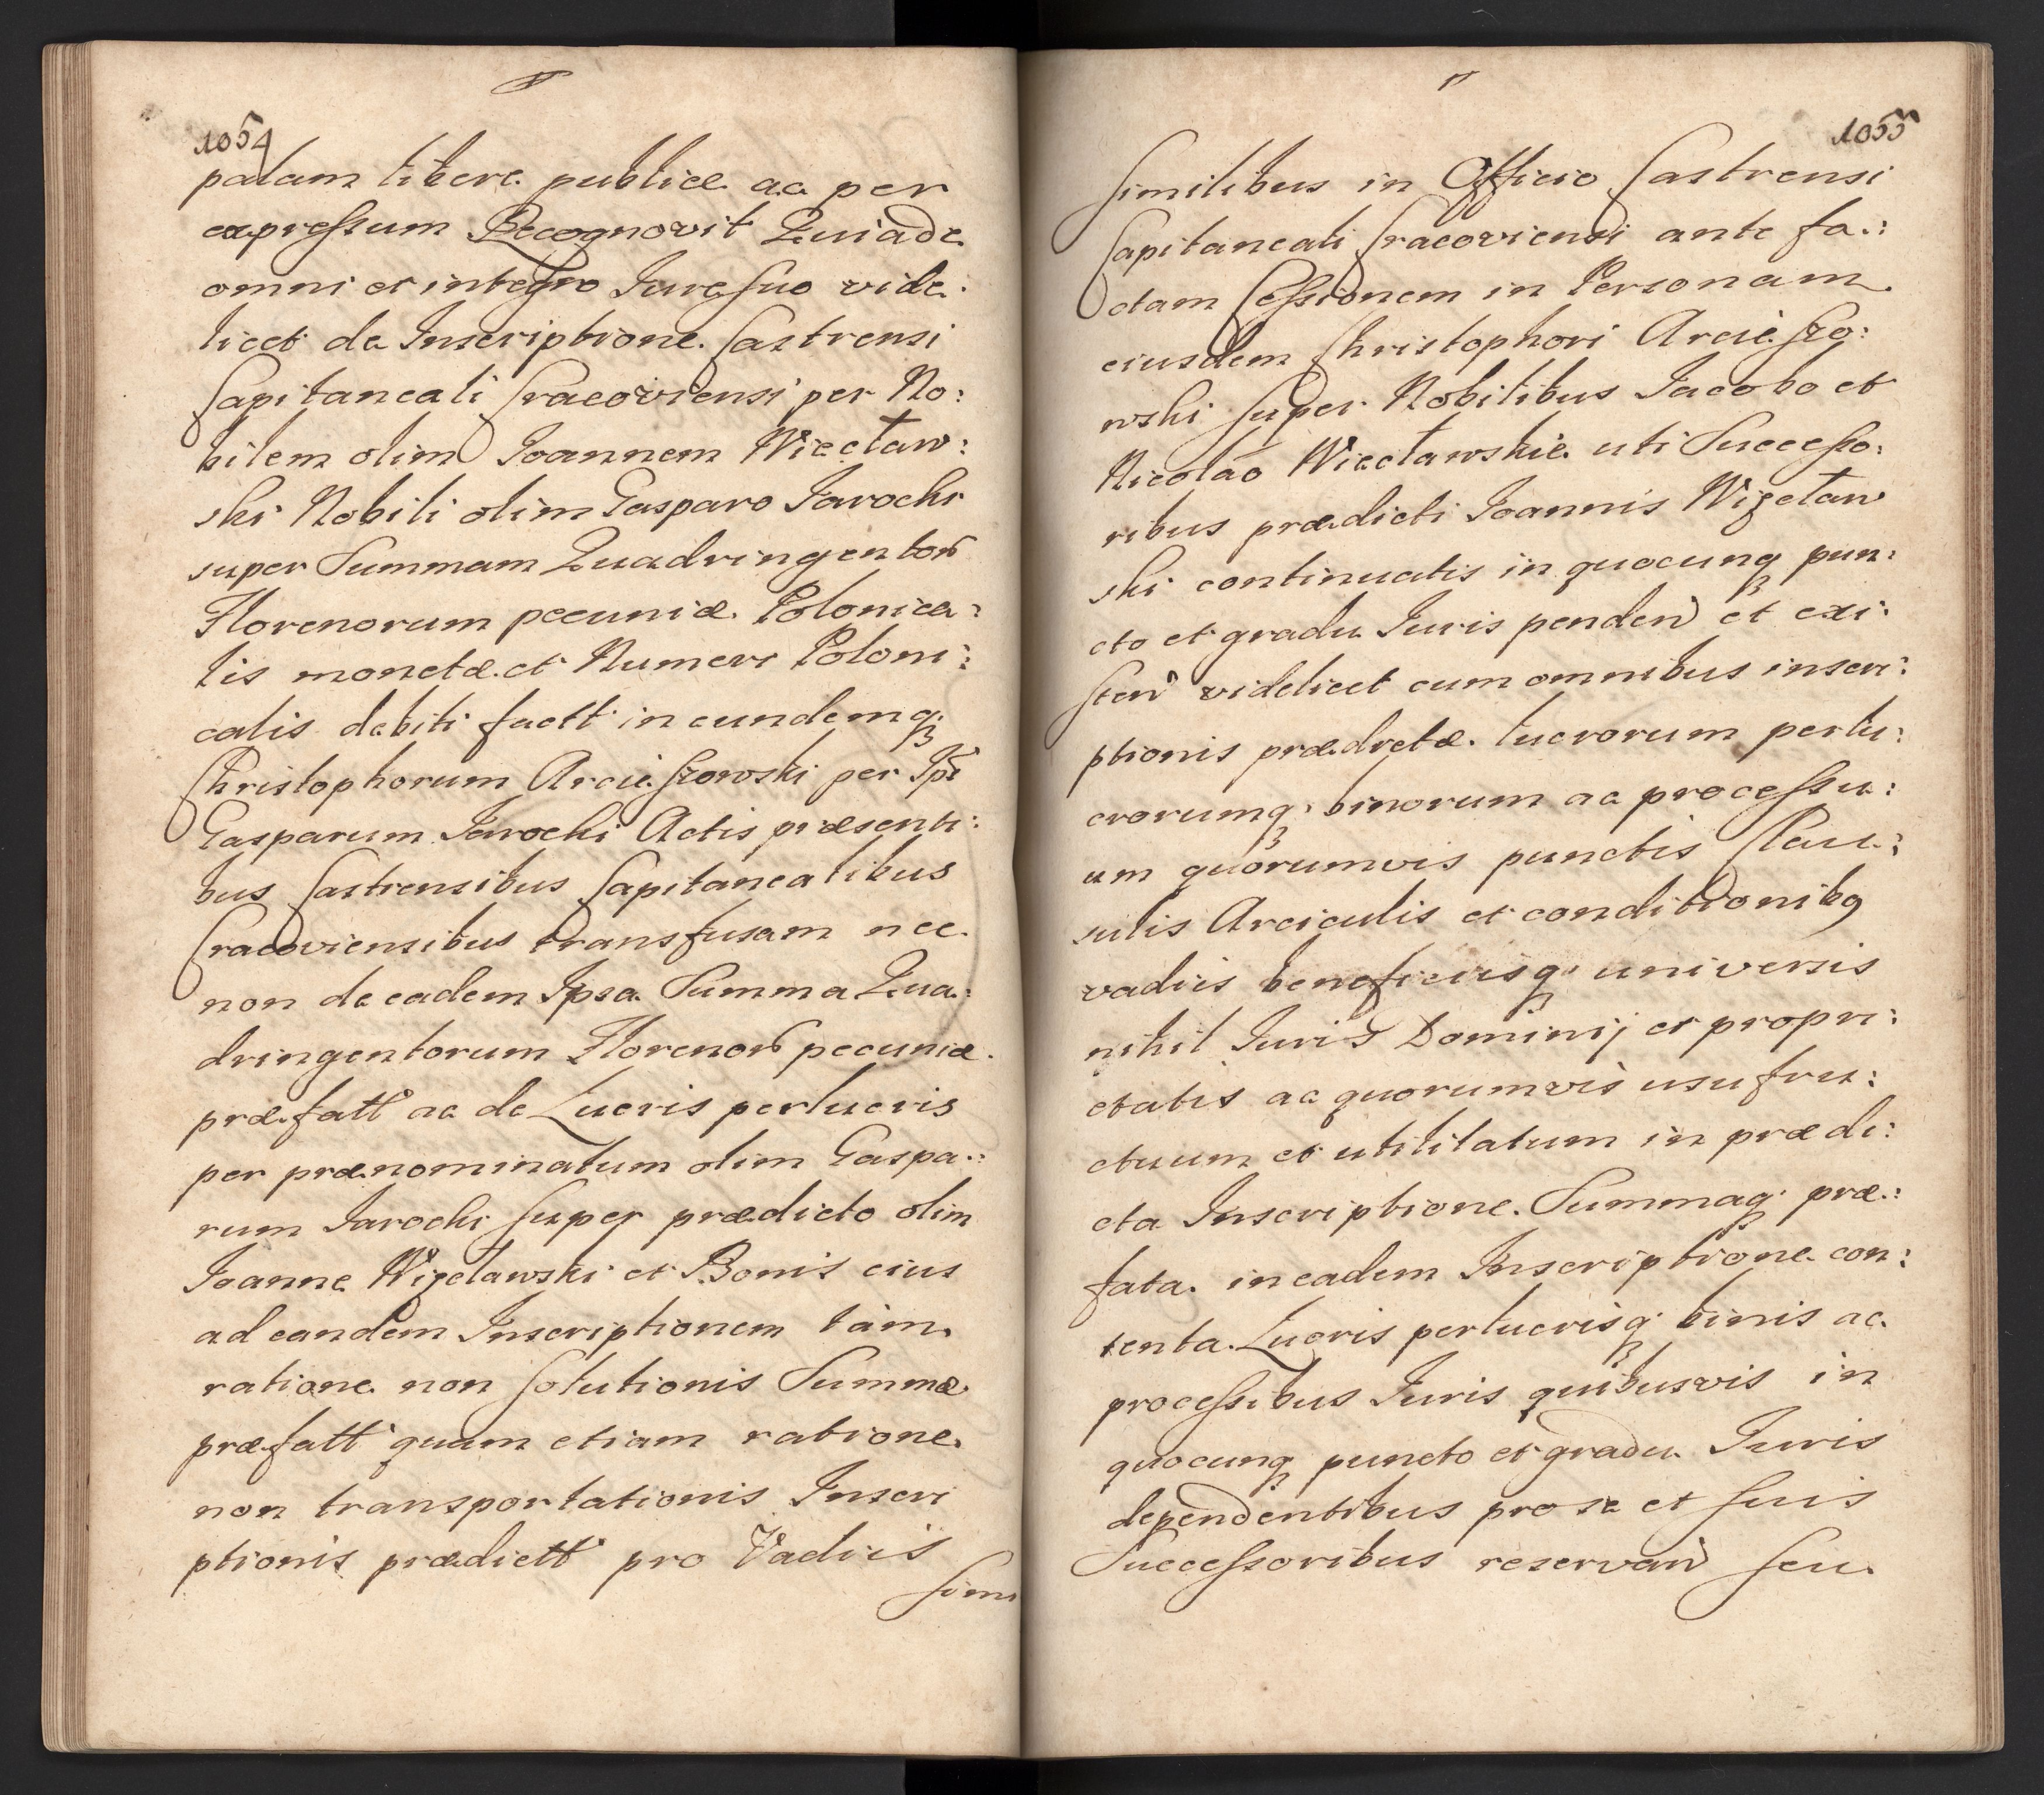 1054
palam libere publicæ ac per
expressum Recognovit Quia de
omni et integro Jure suo vide:
licet de Inscriptione Castrensi
Capitaneali Cracoviensi per No:
bilem olim Joannem Wiecław:
ski Nobili olim Casparo Jarocki
super Summam Quadringentor
Florenorum pecuniæ Polonica:
lis monetæ et Numeri Poloni:
calis debiti factt in eundemq
Christophorum Arcieszowski per Ips
Gasparum Jarocki Actis præsenti:
bus Castrensibus Capitanealibus
Cracoviensibus transfusam nec
non de eadem Ipsa Summa Qua:
dringentorum Florenor pecuniæ
præfatt ac de Lucris perlucris
per prænominatum olim Gaspa:
rum Jarocki super prædicto olim
Joanne Wizcławski et Bonis eius
ad eandem Inscriptionem tàm
ratione non solutionis Summæ
præfatt quam etiam ratione
non transportationis Inscri
ptionis prædictt pro Vadiis
simi
1055
similibus in Officio Castrensi
Capitaneali Cracoviensi ante fa:
ctam Cessionem in Personam
eiusdem Christophori Arcieszo:
wski super Nobilibus Jacobo et
Nicolao Wiecławskie uti Successo:
ribus prædicti Joannis Wizcław
ski continuatis in quocunq pun:
cto et gradu Juris penden et exi:
sten videlicet cum omnibus inscri:
ptionis prædictæ lucrorum perlu:
crorumq binorum ac processu:
um quorumvis punctis Clau:
sulis Arciculis et conditionibq
vadiis beneficiisq universis
nihil Juris Dominij et propri:
etatis ac quorumvis usufru:
ctuum et utilitatum in prædi:
cta Inscriptione Summaq præ:
fata in eadem Inscriptione con:
tenta Lucris perlucrisq binis ac
processibus Juris quibusvis in
quocunq puncto et gradu Juris
dependentibus pro se et suis
Successoribus reservan seu